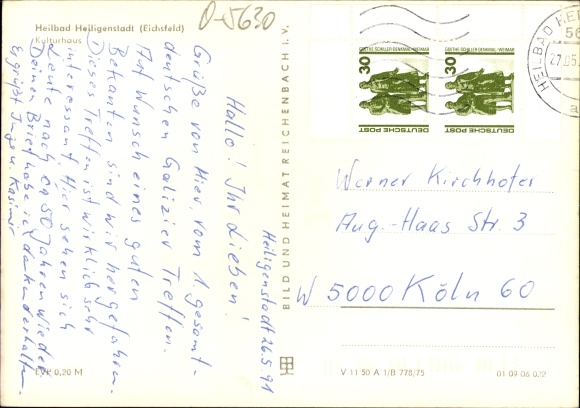 Heilbad Heiligenstadt (Eichsfeld)
Kulturhaus
D-5630
Heiligenstadt 26.5.91
Hallo! Ihr Lieben!
Grüße von Hier, vom 1. gesamt-
deutschen Galizier Treffen.
Auf Wunsch eines guten
Bekanten sind wir hergefahren.
Dieses Treffen ist wirklich sehr
interessant. Hier sehen sich
Leute nach ca 50 Jahren wieder.
Deinen Brief habe ich dankend erhalten.
Es grüßt Inge u. Kasimir
EVP 0,20 M
BILD UND HEIMAT REICHENBACH i. V.
GOETHE-SCHILLER-DENKMAL · WEIMAR
30
DEUTSCHE POST
GOETHE-SCHILLER-DENKMAL · WEIMAR
30
DEUTSCHE POST
HEILBAD HEI
56
27.05.
a
Werner Kirchhofer
Aug.-Haas Str. 3
W 5000 Köln 60
V 11 50 A 1/B 778/75
01 09 06 022